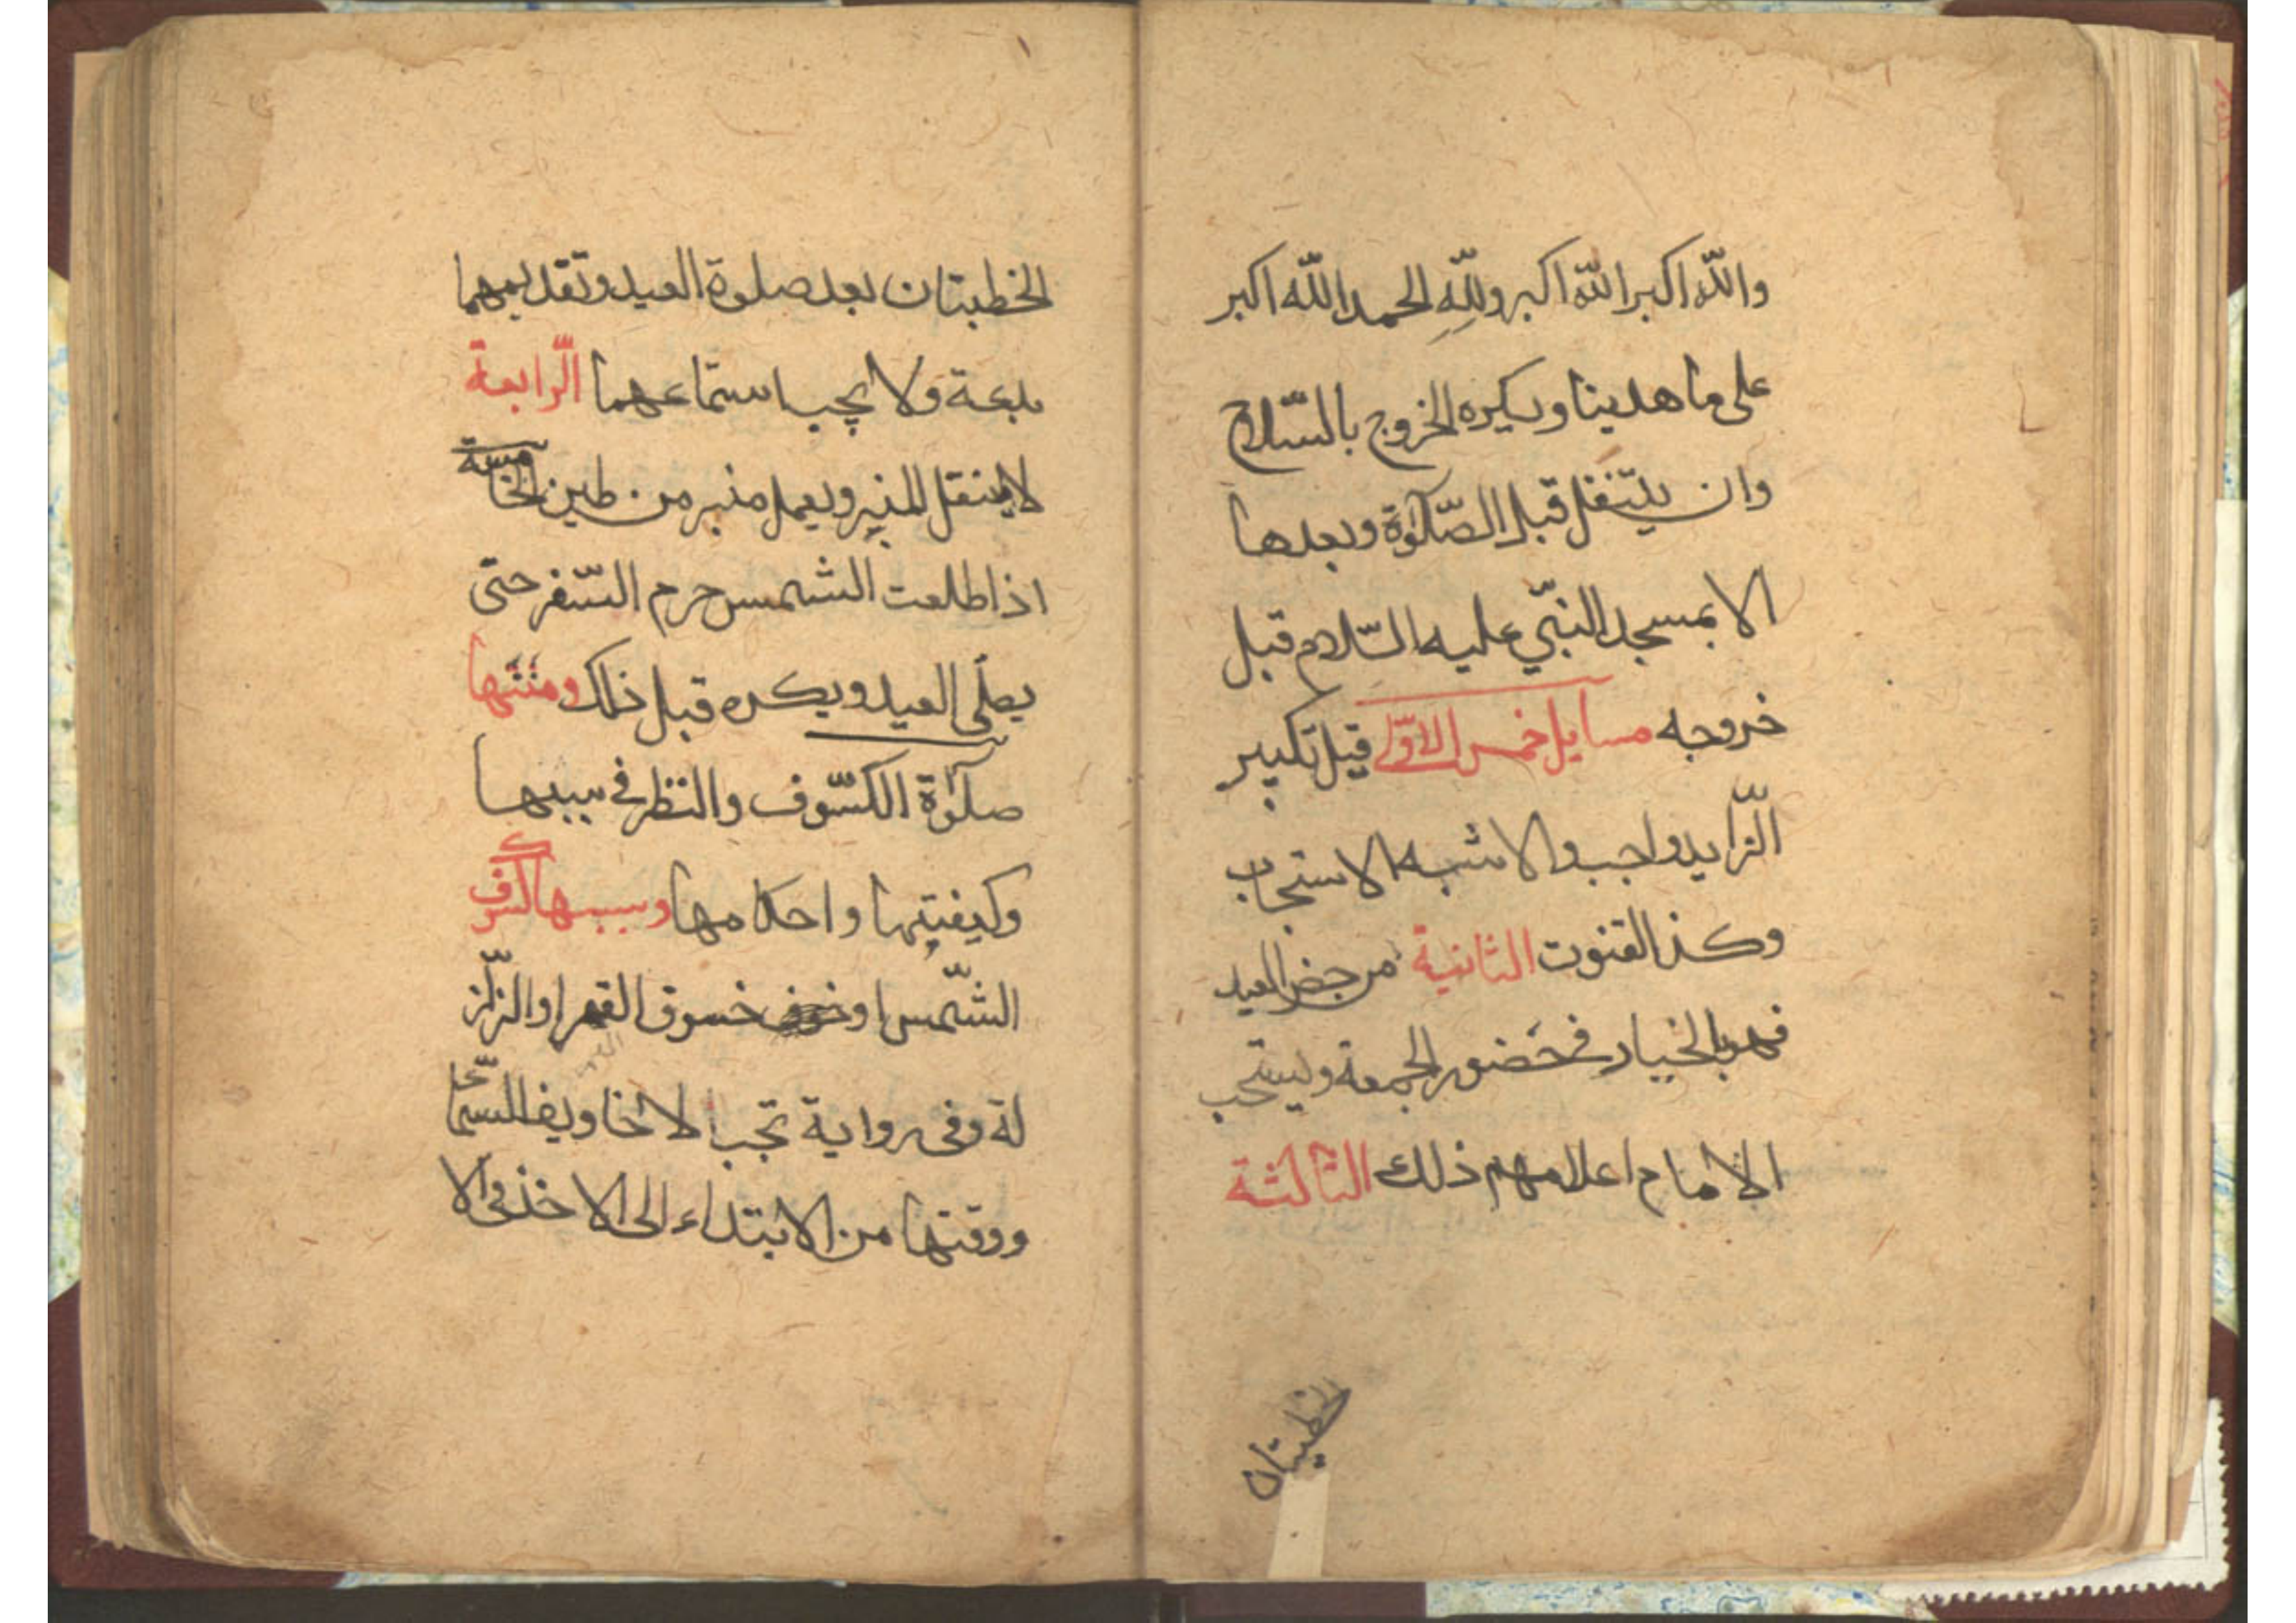 والله اكبر الله اكبر ولله الحمد الله اكبر
على ما هدينا ويكره الخروج بالسّلاح
وان يتنفل قبل الصّلوة وبعدها
الا بمسجد النبّي عليه السّلام قبل
خروجه مسايل خمس الاوّلى قيل تكبير
الزّايد واجب والاشبه الاستحباب
وكذ القنوت الثانية من حضر العيد
فهو بالخيار في حَضور الجمعة ويستحب
الامام اعلامهم ذلك الثالثة
الخطبتان
الخطبتان بعد صلوة العيد وتقديمهما
بدعة ولا يجب استماعهما الرّابعة
لا ينقل المنبر ويعمل منبر من طين الخامسة
اذا طلعت الشمس حرم السّفر حتى
يصلّى العيد ويكره قبل ذلك ومنها
صلوة الكسّوف والنظر في سببها
وكيفيتها واحكامها وسببها كسوف
الشّمس او خسوق القمر او الزلز
لة وفى رواية تجب لاخاويف السّما
ووقتها من الابتداء الى الاخذ فى الا